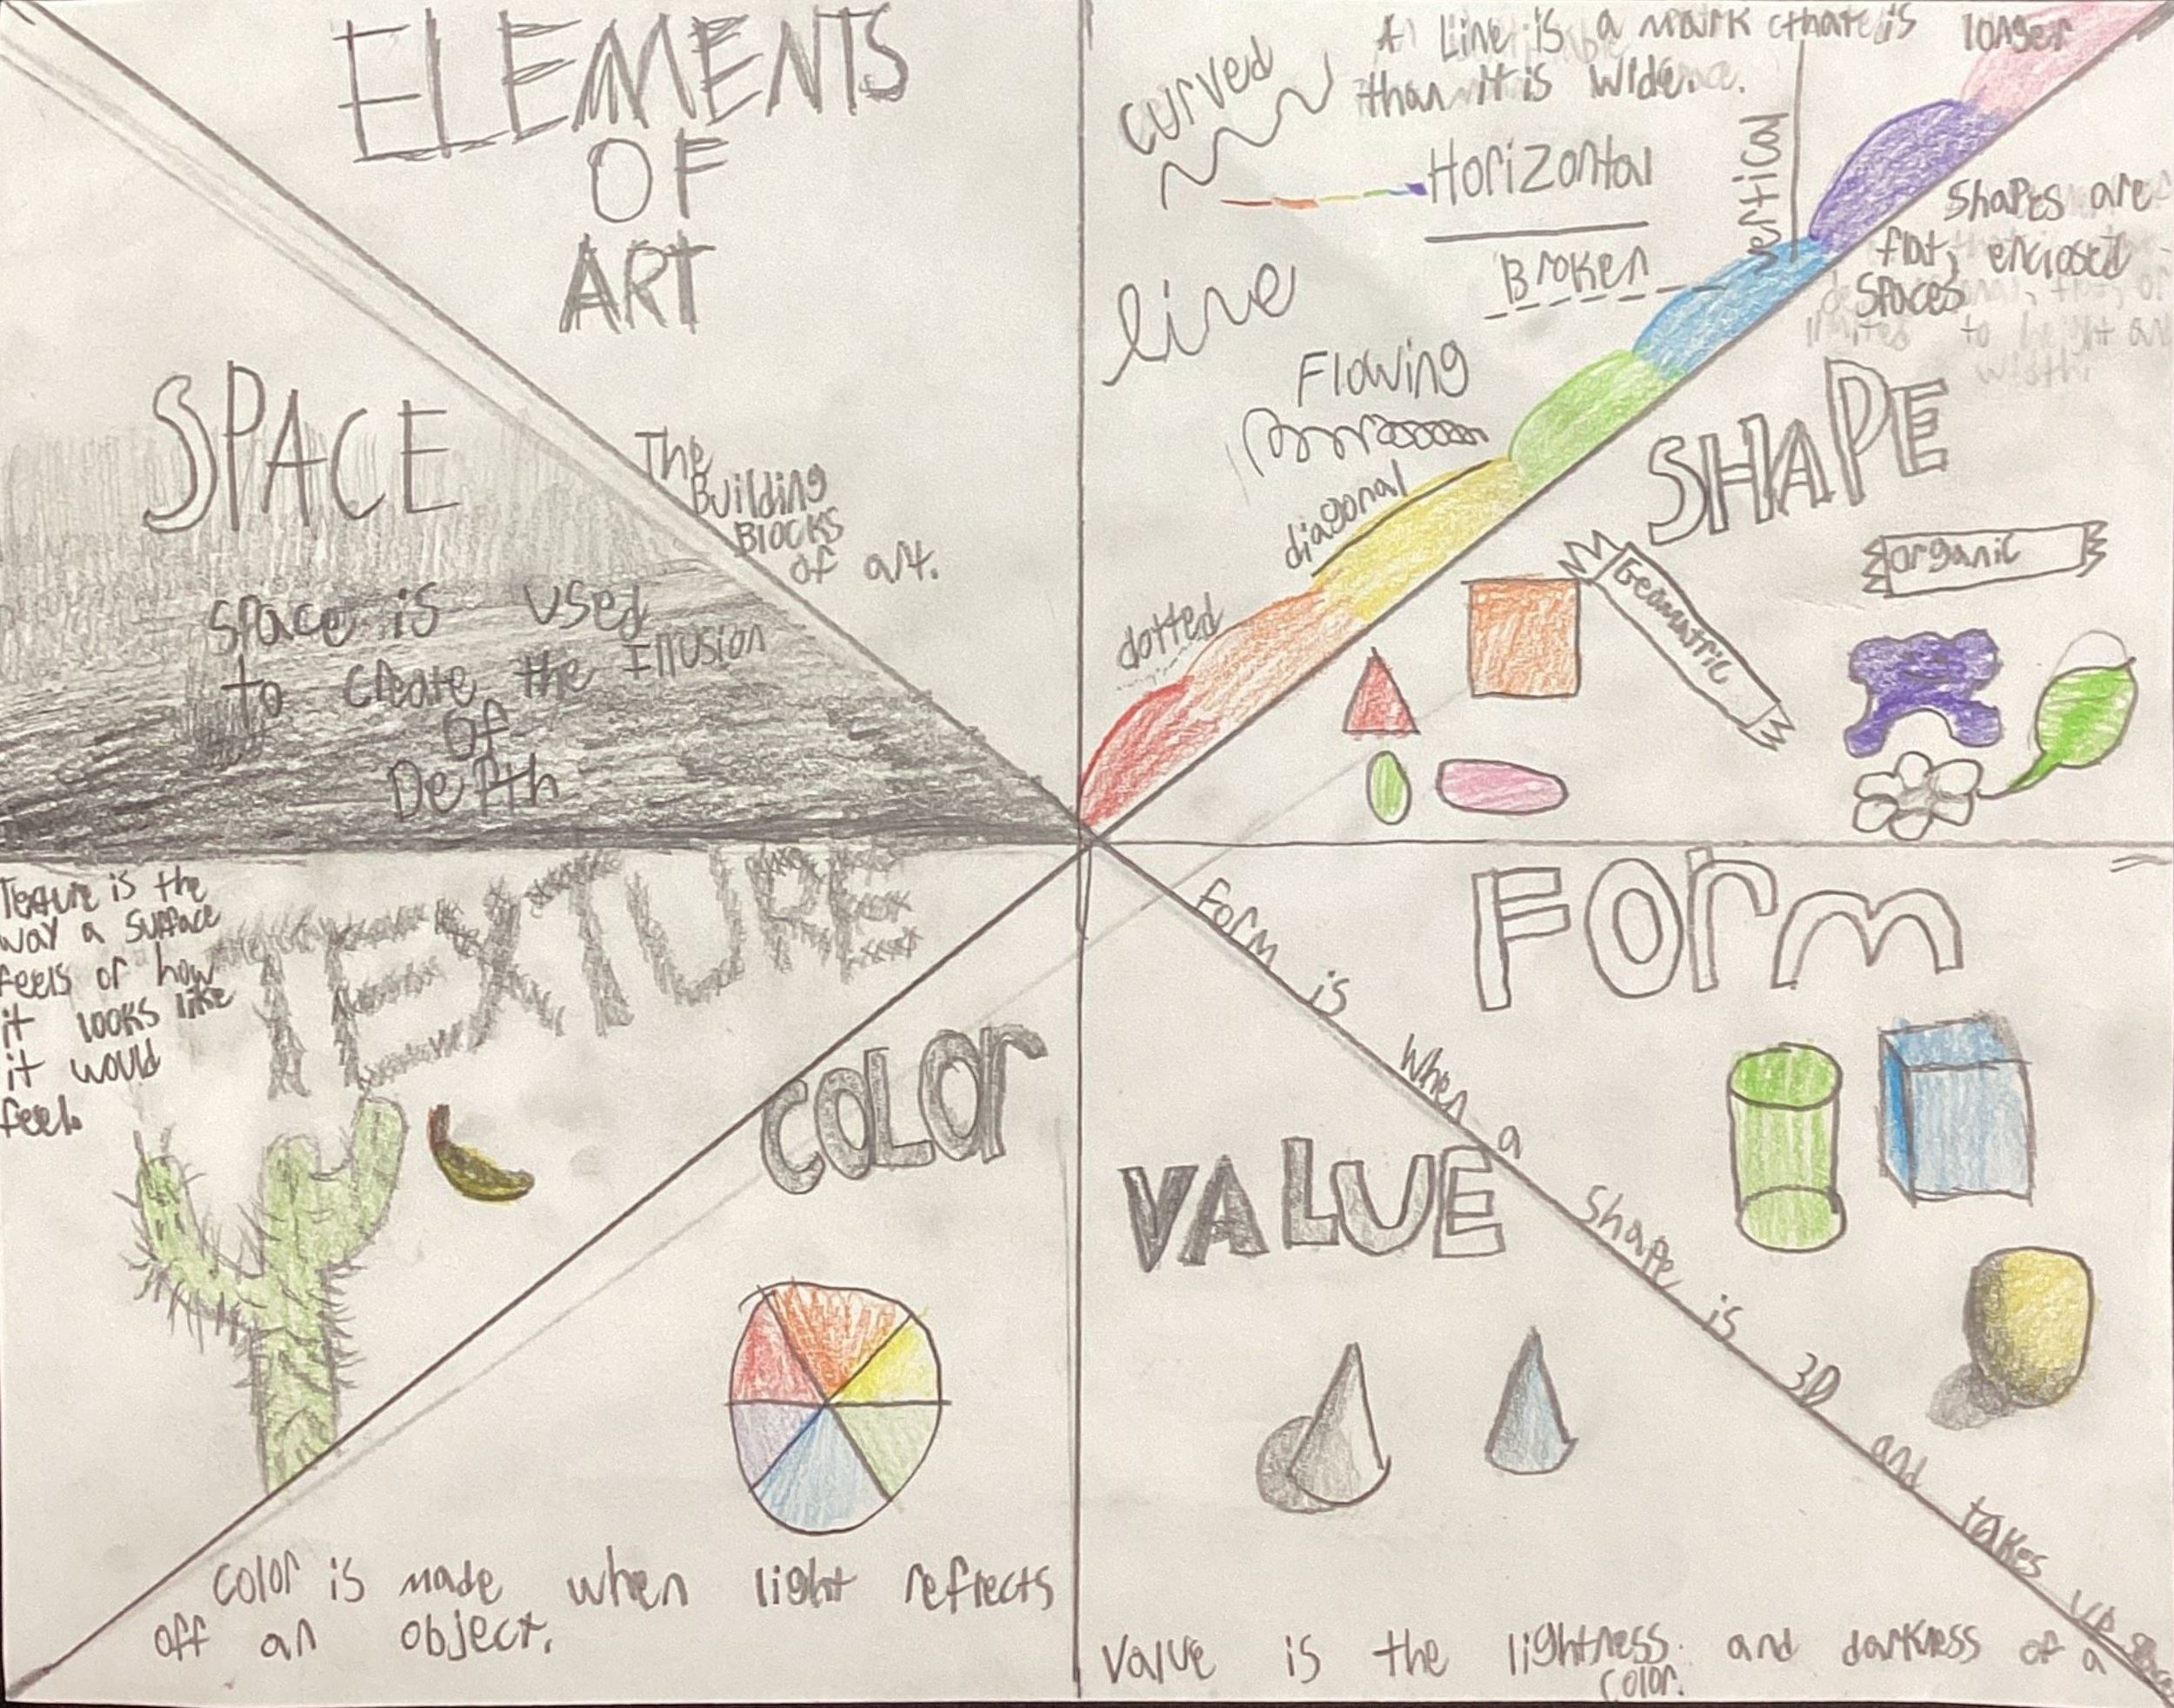 ELEMENTS
OF
ART
The
Building
Blocks
of art.
A Line is a mark that is longer
than it is wide.
curved
Horizontal
vertical
Broken
line
Flowing
diagonal
dotted
Shapes are
flat, enclosed
spaces
limited to height and
width.
SHAPE
Geometric
organic
SPACE
Space is used
to create the Illusion
of
Depth
TEXTURE
Texture is the
way a surface
feels or how
it looks like
it would
feel.
COLOr
Color is made when light reflects
off an object.
VALUE
Value is the lightness and darkness of a
color.
FOrm
Form is when a shape is 3D and takes up space